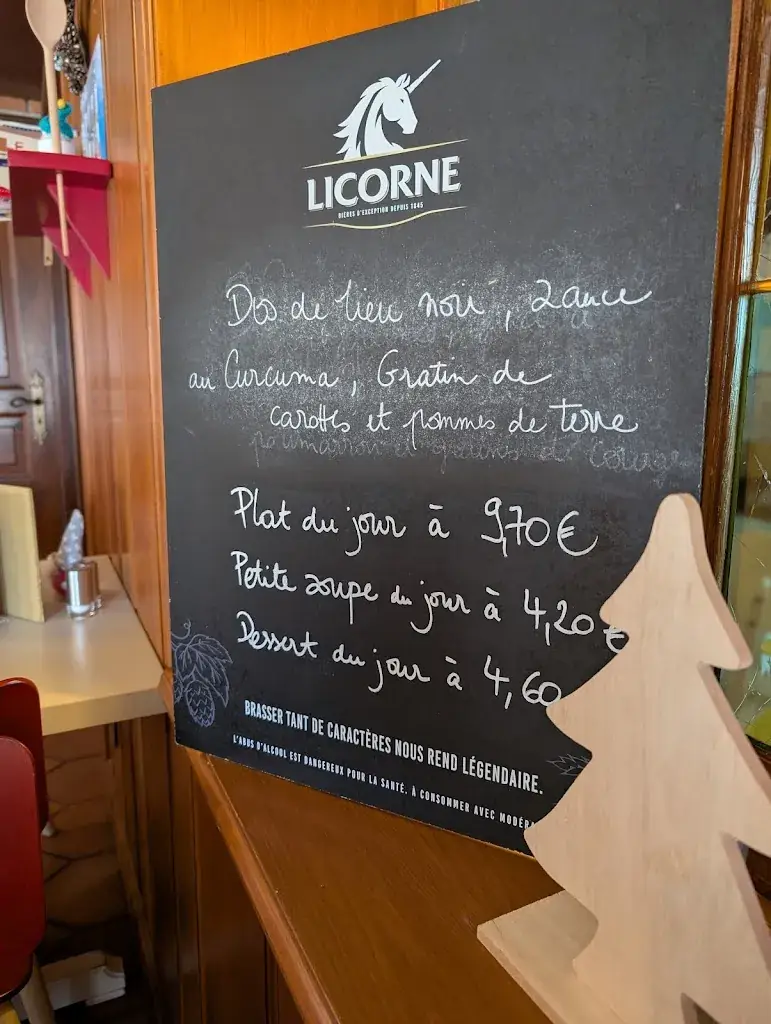 LICORNE
BIÈRES D'EXCEPTION DEPUIS 1845
Dos de lieu noir, sauce
au Curcuma, Gratin de
carottes et pommes de terre
Plat du jour à 9,70€
Petite soupe du jour à 4,20€
Dessert du jour à 4,60
BRASSER TANT DE CARACTÈRES NOUS REND LÉGENDAIRE.
L'ABUS D'ALCOOL EST DANGEREUX POUR LA SANTÉ. À CONSOMMER AVEC